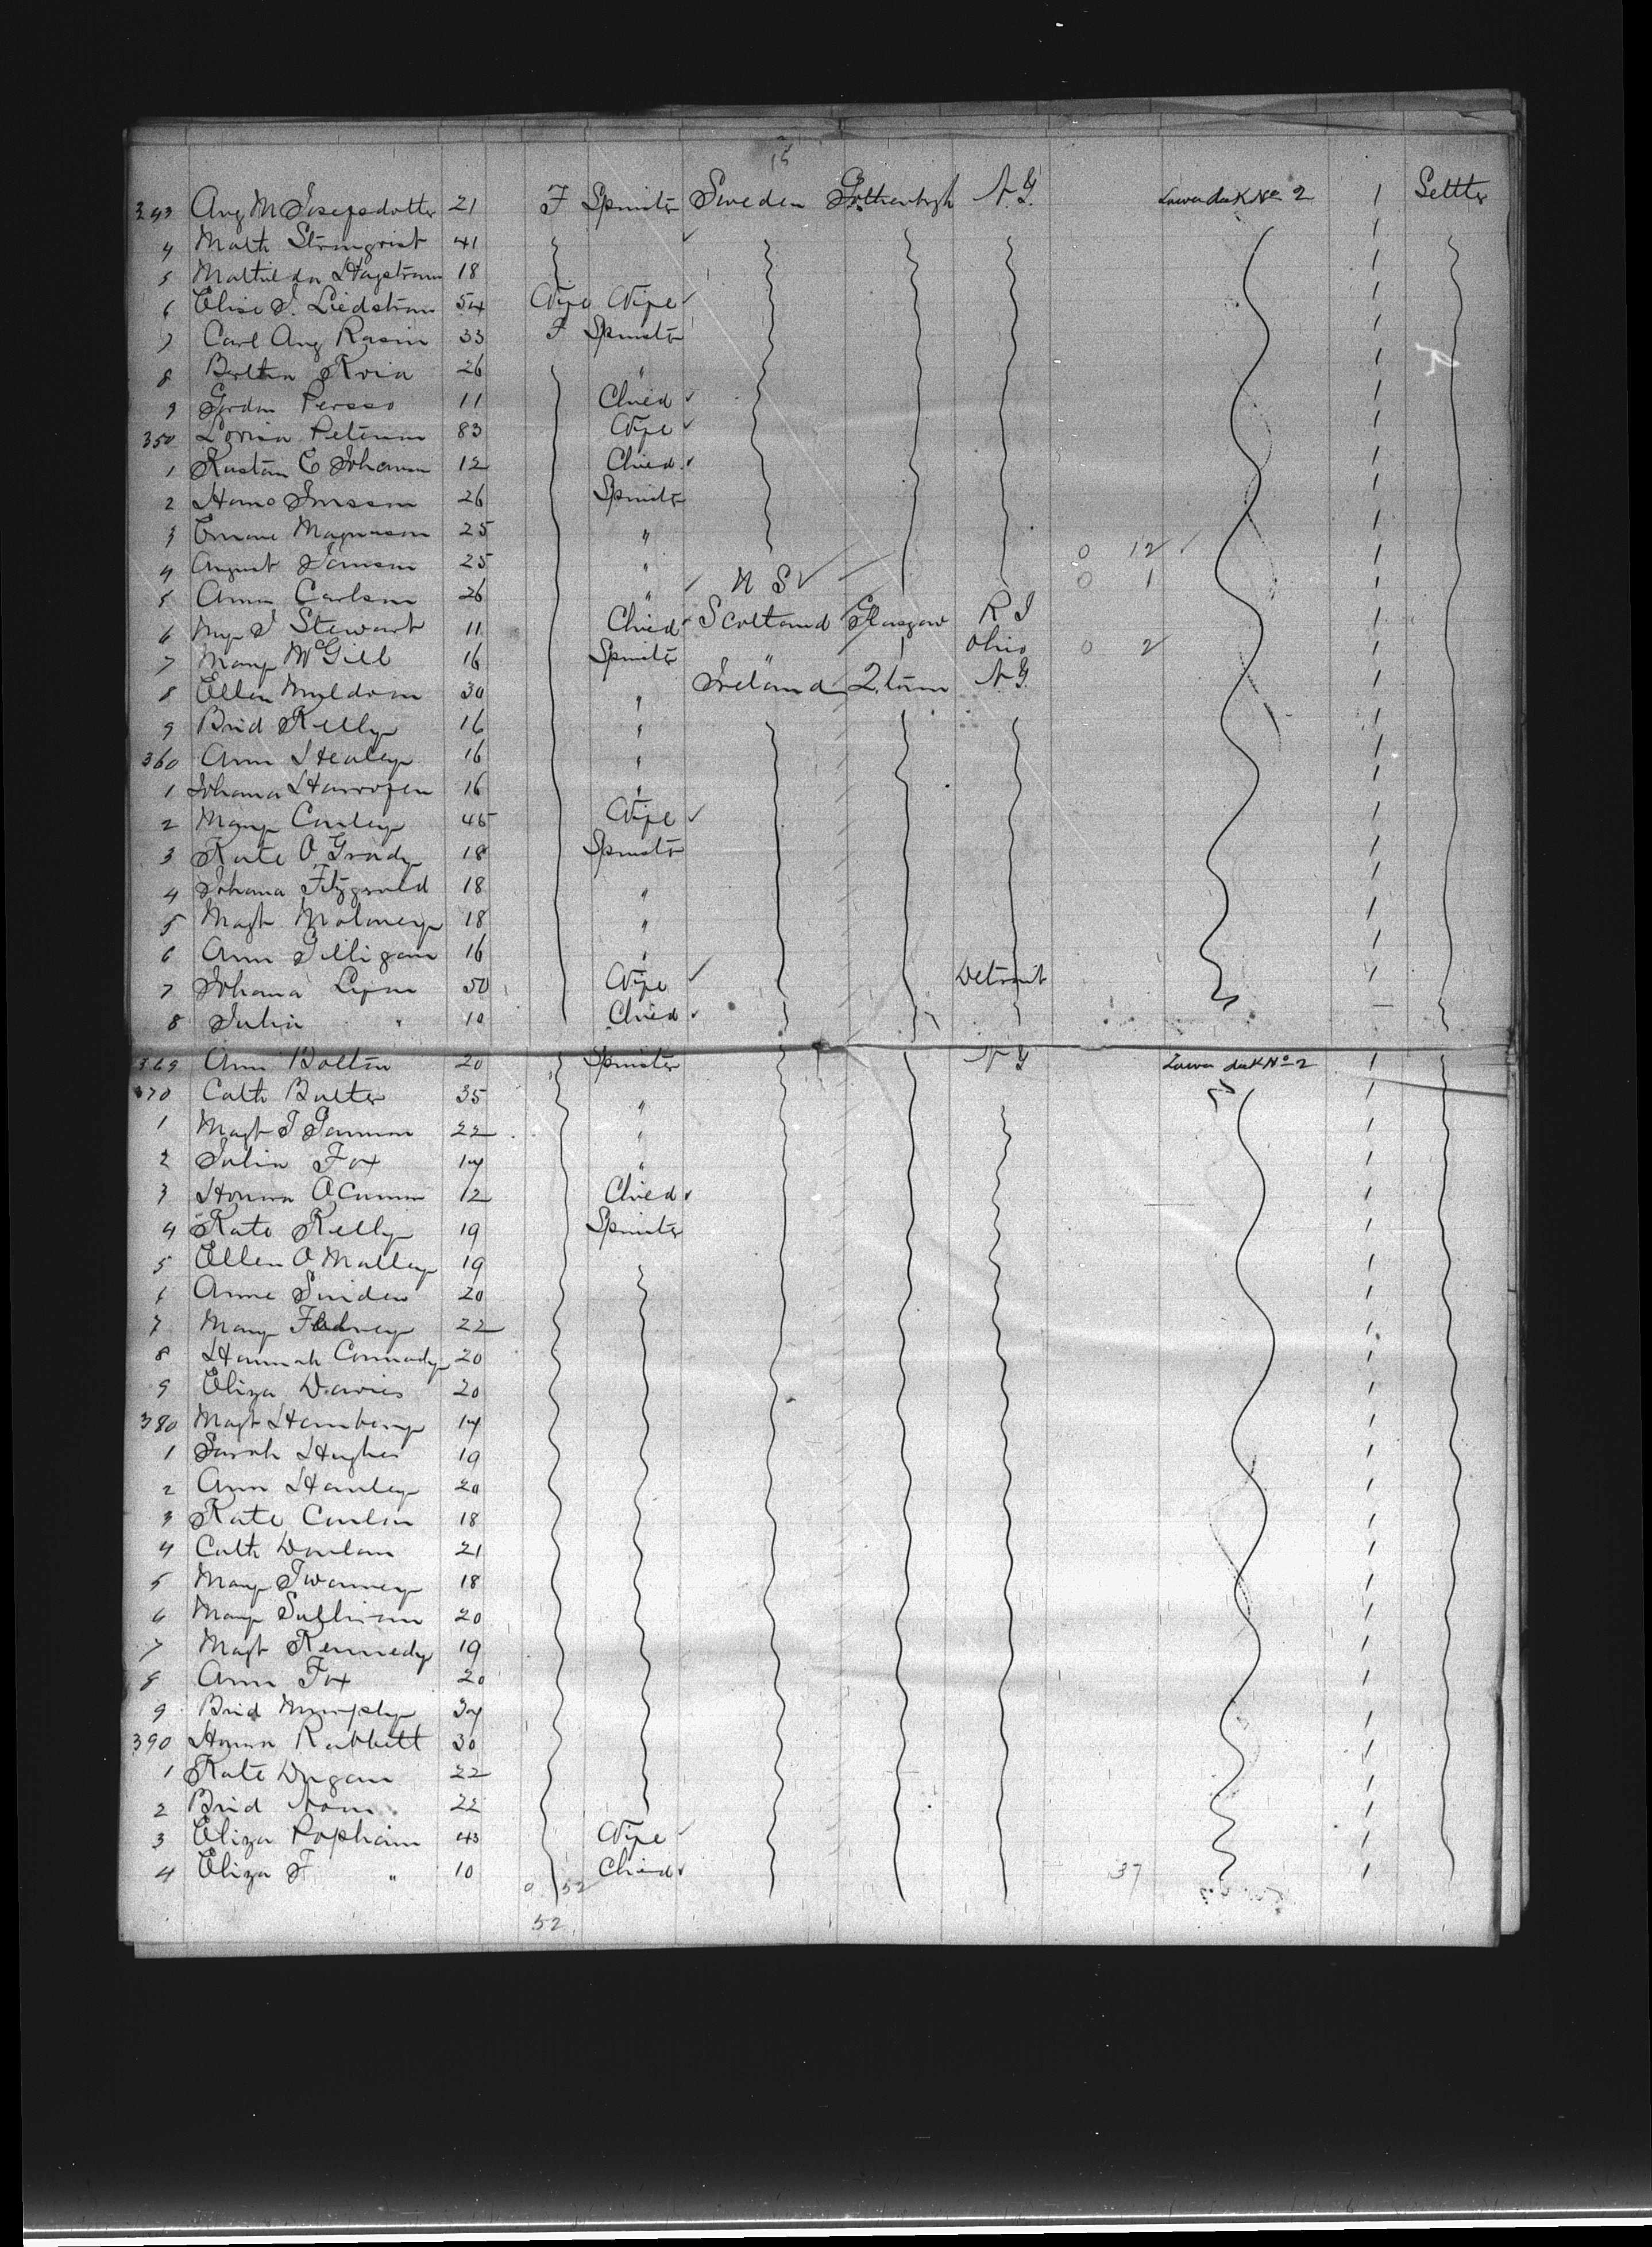 15
343 Aug M Josepsdotter 21 F Spinster Sweden Gothenbrgh N Y. Lower deck No 2 1 Settler
4 Math Strmqvist 41 1
5 Mathilda Hagstrom 18 1
6 Elise S. Liedstrom 54 Wife Wife 1
7 Carl Aug Rosin 33 F Spinstr 1
8 Bertha Kvia 26 " 1
9 Gordon Persso 11 Child 1
350 Lovisa Peterson 83 Wife 1
1 Kustan C Johanson 12 Child 1
2 Hans Jonsson 26 Spinstr 1
3 Magnuson 25 " 1
4 August Jonson 25 " 0 12 1
5 Anna Carlson 26 " N S 0 1 1
6 J Stewart 11 Child Scotland Glasgow R I 1
7 Mary McGill 16 Spinstr " Ohio 0 2 1
8 Ellen Muldoon 30 " Ireland Q.town N Y. 1
9 Brid Kelly 16 " 1
360 Ann Healey 16 " 1
1 Johana 16 " 1
2 Mary Conley 45 Wife 1
3 Kate O Grady 18 Spinstr 1
4 Johana Fitzgerald 18 " 1
5 Magt Moloney 18 " 1
6 Ann Gilligan 16 " 1
7 Johana Lyon 50 Wife Detroit 1
8 Julia " 10 Child —
369 Ann Bolton 20 Spinster N Y Lower deck No 2 1
370 Cath Butler 35 " 1
1 Magt T Gannon 22 " 1
2 Julia Fox 14 " 1
3 Honora O Connor 12 Child 1
4 Kate Kelly 19 Spinster 1
5 Ellen O Malley 19 1
6 Anne 20 1
7 Mary 22 1
8 Hannah 20 1
9 Eliza Davies 20 1
380 Magt Hanberry 14 1
1 Sarah Hughes 19 1
2 Ann Hanley 20 1
3 Kate Conlon 18 1
4 Cath Donlan 21 1
5 Mary Twomey 18 1
6 Mary Sullivan 20 1
7 Magt Kennedy 19 1
8 Ann Fox 20 1
9 Brid Murphy 34 1
390 Honora Rabbett 30 1
1 Kate Dugan 22 1
2 Brid 22 1
3 Eliza Popham 43 Wife 1
4 Eliza F " 10 Child 37 1
0 52
52